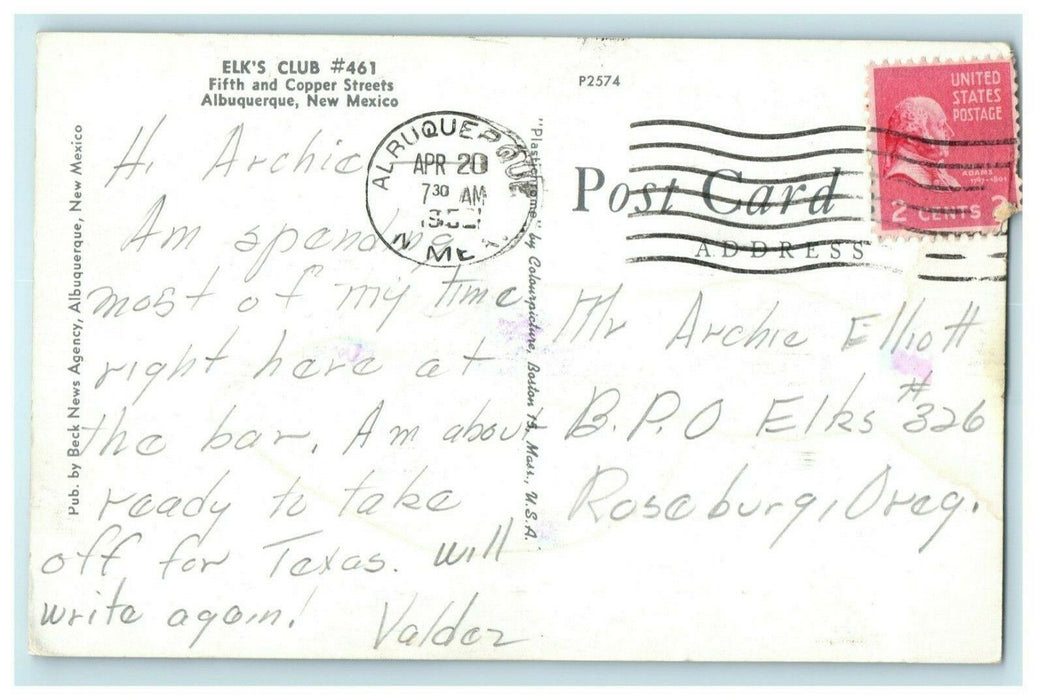 ELK'S CLUB #461
Fifth and Copper Streets
Albuquerque, New Mexico
P2574
Pub. by Beck News Agency, Albuquerque, New Mexico
Hi Archie
Am spending
most of my time
right here at
the bar. Am about
ready to take
off for Texas. Will
write again!
Valdez
ALBUQUERQUE
APR 20
7 30 AM
N MEX
"Plastichrome" by Colourpicture, Boston 15, Mass., U.S.A.
UNITED
STATES
POSTAGE
ADAMS
1797-1801
2 CENTS 2
Post Card
ADDRESS
Mr Archie Elliott
B.P.O Elks #326
Roseburg, Oreg.